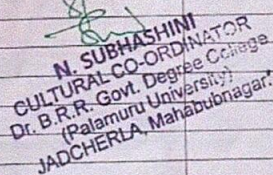 N. SUBHASHINI
CULTURAL CO-ORDINATOR
Dr. B.R.R. Govt. Degree College
(Palamuru University)
JADCHERLA, Mahabubnagar.